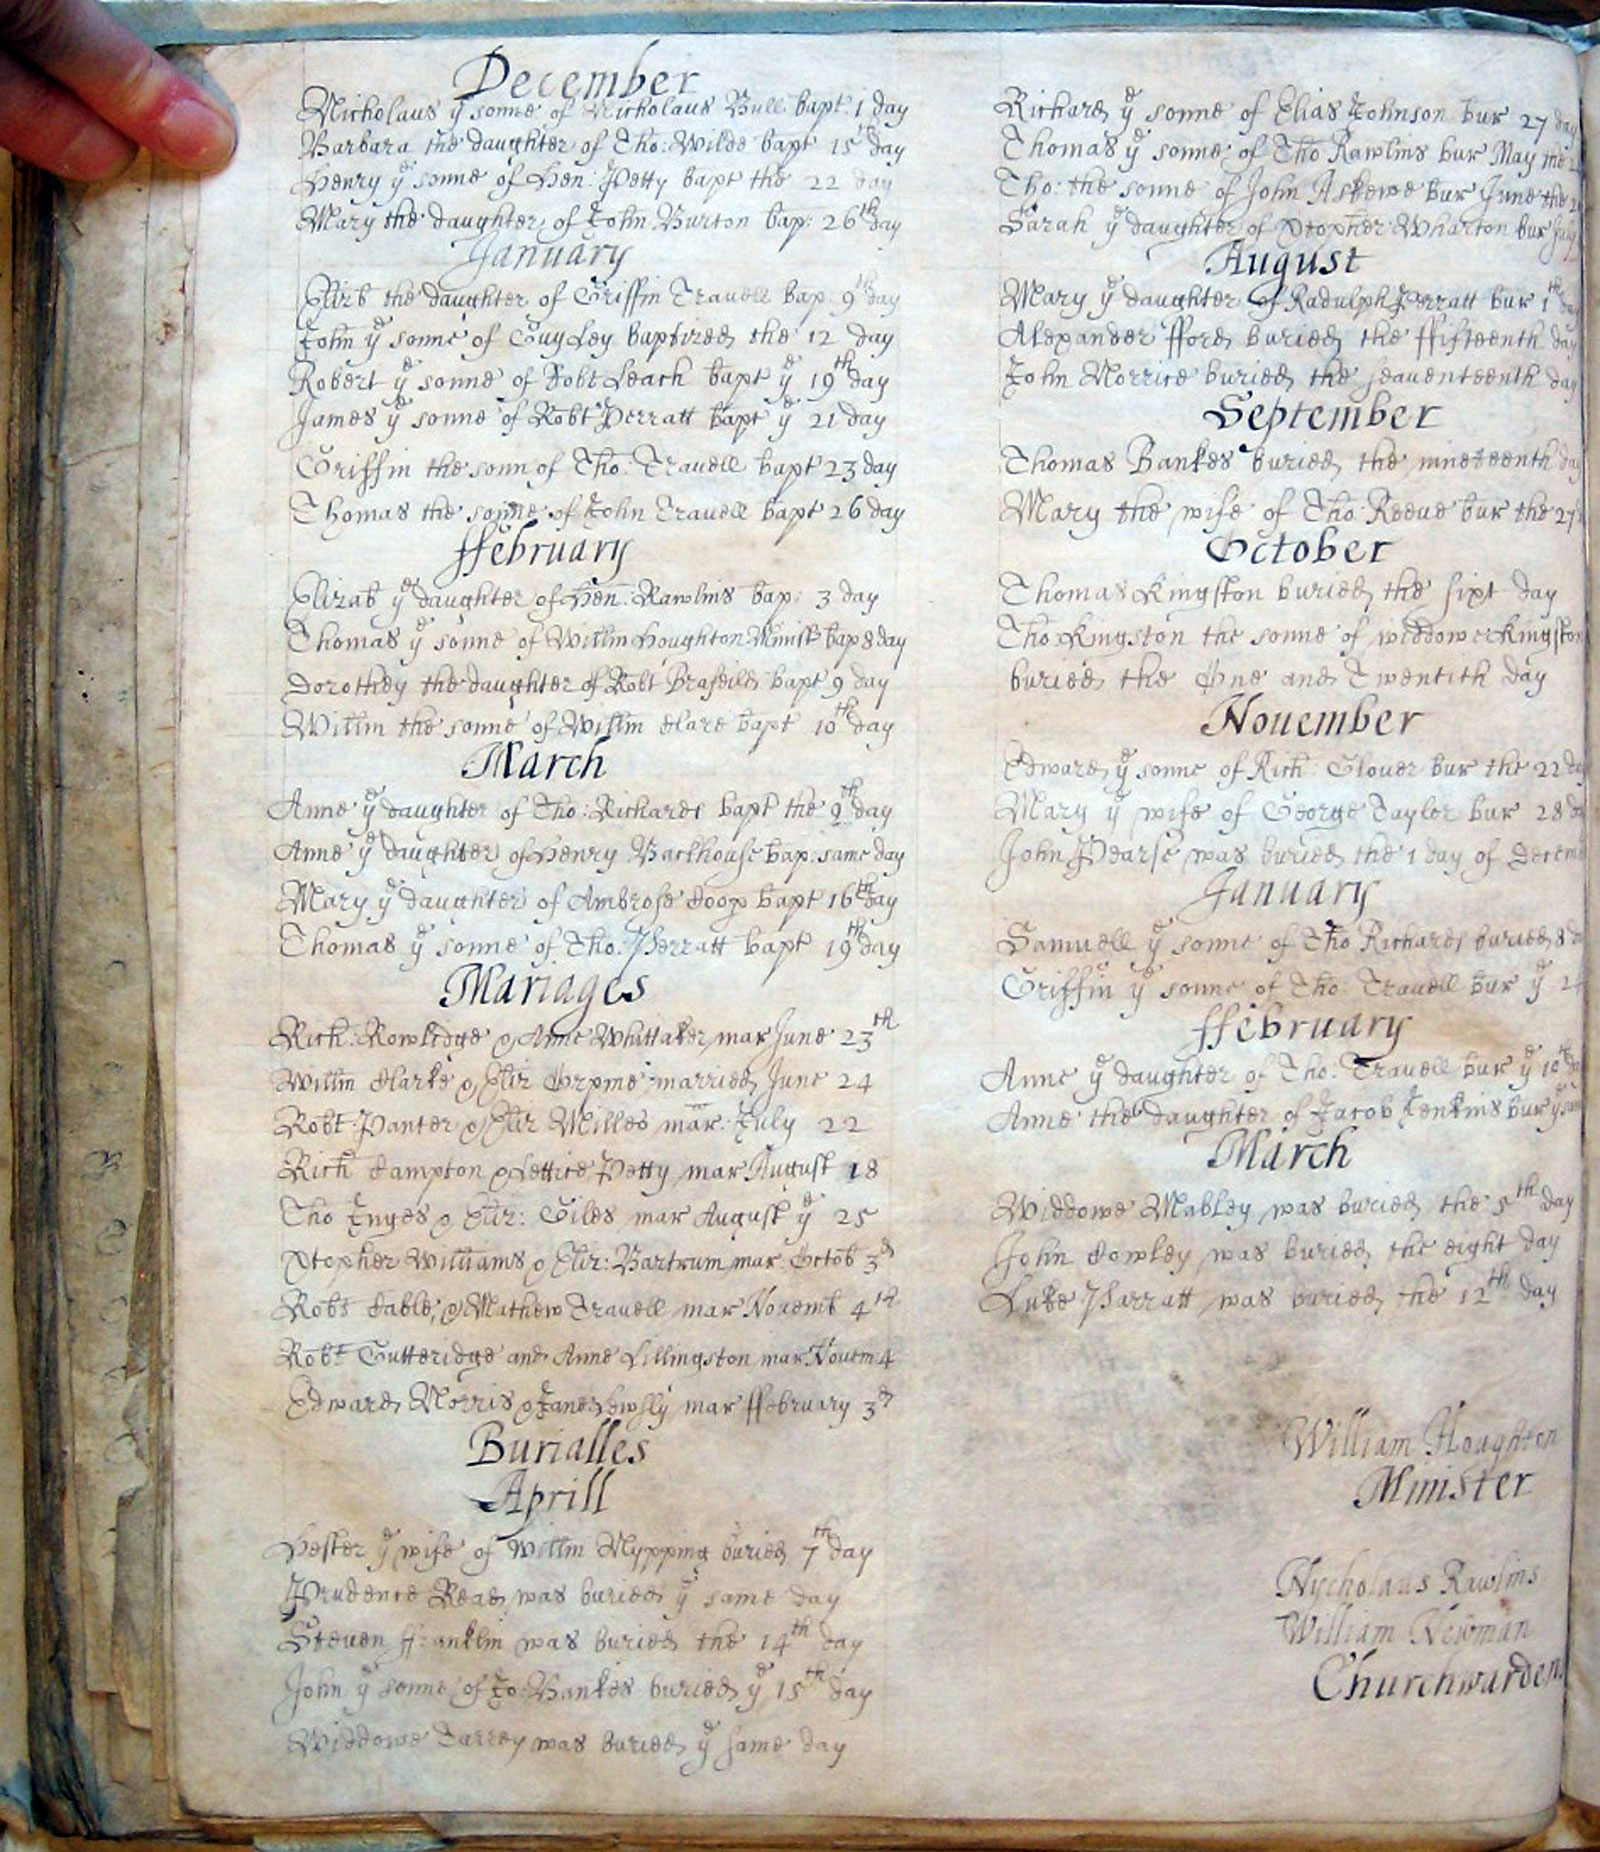 December
Nicholaus yͤ sonne of Nicholaus Bull bapt: 1 day
Barbara the daughter of Tho: Wilde bapt 15th day
Henry yͤ sonne of Hen: Petty bapt the 22 day
Mary the daughter of John Burton bap: 26th day
January
Elizb the daughter of Griffin Travell bap: 9th day
John yͤ sonne of Guy Ley baptized the 12 day
Robert yͤ sonne of Robt Leach bapt yͤ 19th day
James yͤ sonne of Robt Perratt bapt yͤ 21 day
Griffin the sonn of Tho: Travell bapt 23 day
Thomas the sonne of John Travell bapt 26 day
ffebruary
Elizab yͤ daughter of Hen: Rawlins bap: 3 day
Thomas yͤ sonne of Willm Houghton Minist bap 8 day
Dorothey the daughter of Robt bapt 9 day
Willm the sonne of Willm Clare bapt 10th day
March
Anne yͤ daughter of Tho: Richards bapt the 9th day
Anne yͤ daughter of Henry Backhouse bap: same day
Mary yͤ daughter of Ambrose Coop bapt 16th day
Thomas yͤ sonne of Tho: Perratt bapt 19th day
Mariages
Rich: Rowlidge & Anne Whittaker mar June 23th
Willm Clarke & Eliz married June 24
Robt: Panter & Eliz Milles mar: July 22
Rich Campton & Lettice Petty mar August 18
Tho Inges & Eliz: Giles mar August yͤ 25
Xtopher Williams & Eliz: Bartrum mar Octob 3d
Robt Cable & Mathew Travell mar Novemb 4th
Robt Gutteridge and Anne Lillingston mar Novem 4
Edward Morris & Jane mar ffebruary 3d
Burialles
Aprill
Hester yͤ wife of Willm Mypping buried 7th day
Prudence Read was buried yͤ same day
Steven ffranklin was buried the 14th day
John yͤ sonne of Jo: Bankes buried yͤ 15th day
Widdowe Tarrey was buried yͤ same day
Richard yͤ sonne of Elias Johnson bur 27 day
Thomas yͤ sonne of Tho Rawlins bur May the
Tho: the sonne of John Askewe bur June the
Sarah yͤ daughter of Xtopher Wharton bur
August
Mary yͤ daughter of Radulph Perratt bur 1th
Alexander fford buried the ffifteenth day
John Morrice buried the seaventeenth day
September
Thomas Bankes buried the nineteenth day
Mary the wife of Tho: Reeve bur the 27
October
Thomas Kingston buried the sixt day
Tho: Kingston the sonne of widdowe Kingston
buried the One and Twentith day
November
Edward yͤ sonne of Rich: Glover bur the 22 day
Mary yͤ wife of George Tayler bur 28
John Pearse was buried the 1 day of Decem
January
Samuell yͤ sonne of Tho Richards buried 8
Griffin yͤ sonne of Tho: Travell bur yͤ
ffebruary
Anne yͤ daughter of Tho: Travell bur yͤ 10th
Anne the daughter of Jacob Jenkins bur yͤ
March
Widdowe Mabley was buried the 5th day
John Cowley was buried the eight day
Luke Parratt was buried the 12th day
William Houghton
Minister
Nycholaus Rawlins
William Newman
Churchwarden